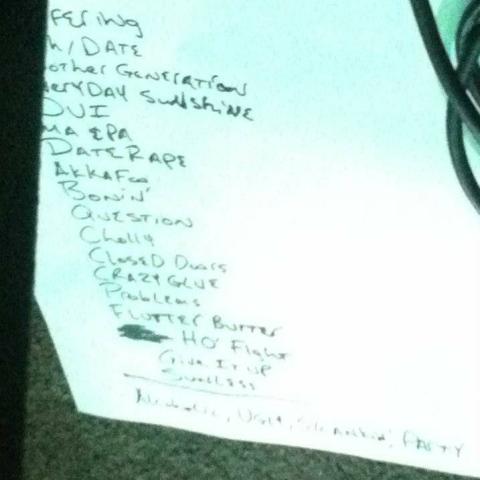 FERING
/DATE
other GENERATION
ERYDAY SUNSHINE
DUI
MA EPA
DATE RAPE
AKKAFOO
BONIN'
QUESTION
Cholly
CLOSED DOORS
CRAZY GLUE
Problems
FLUTTER BUTTER
HO FIGHT
Give IT UP
SunLess
Alcoholic, UGLY, PARTY